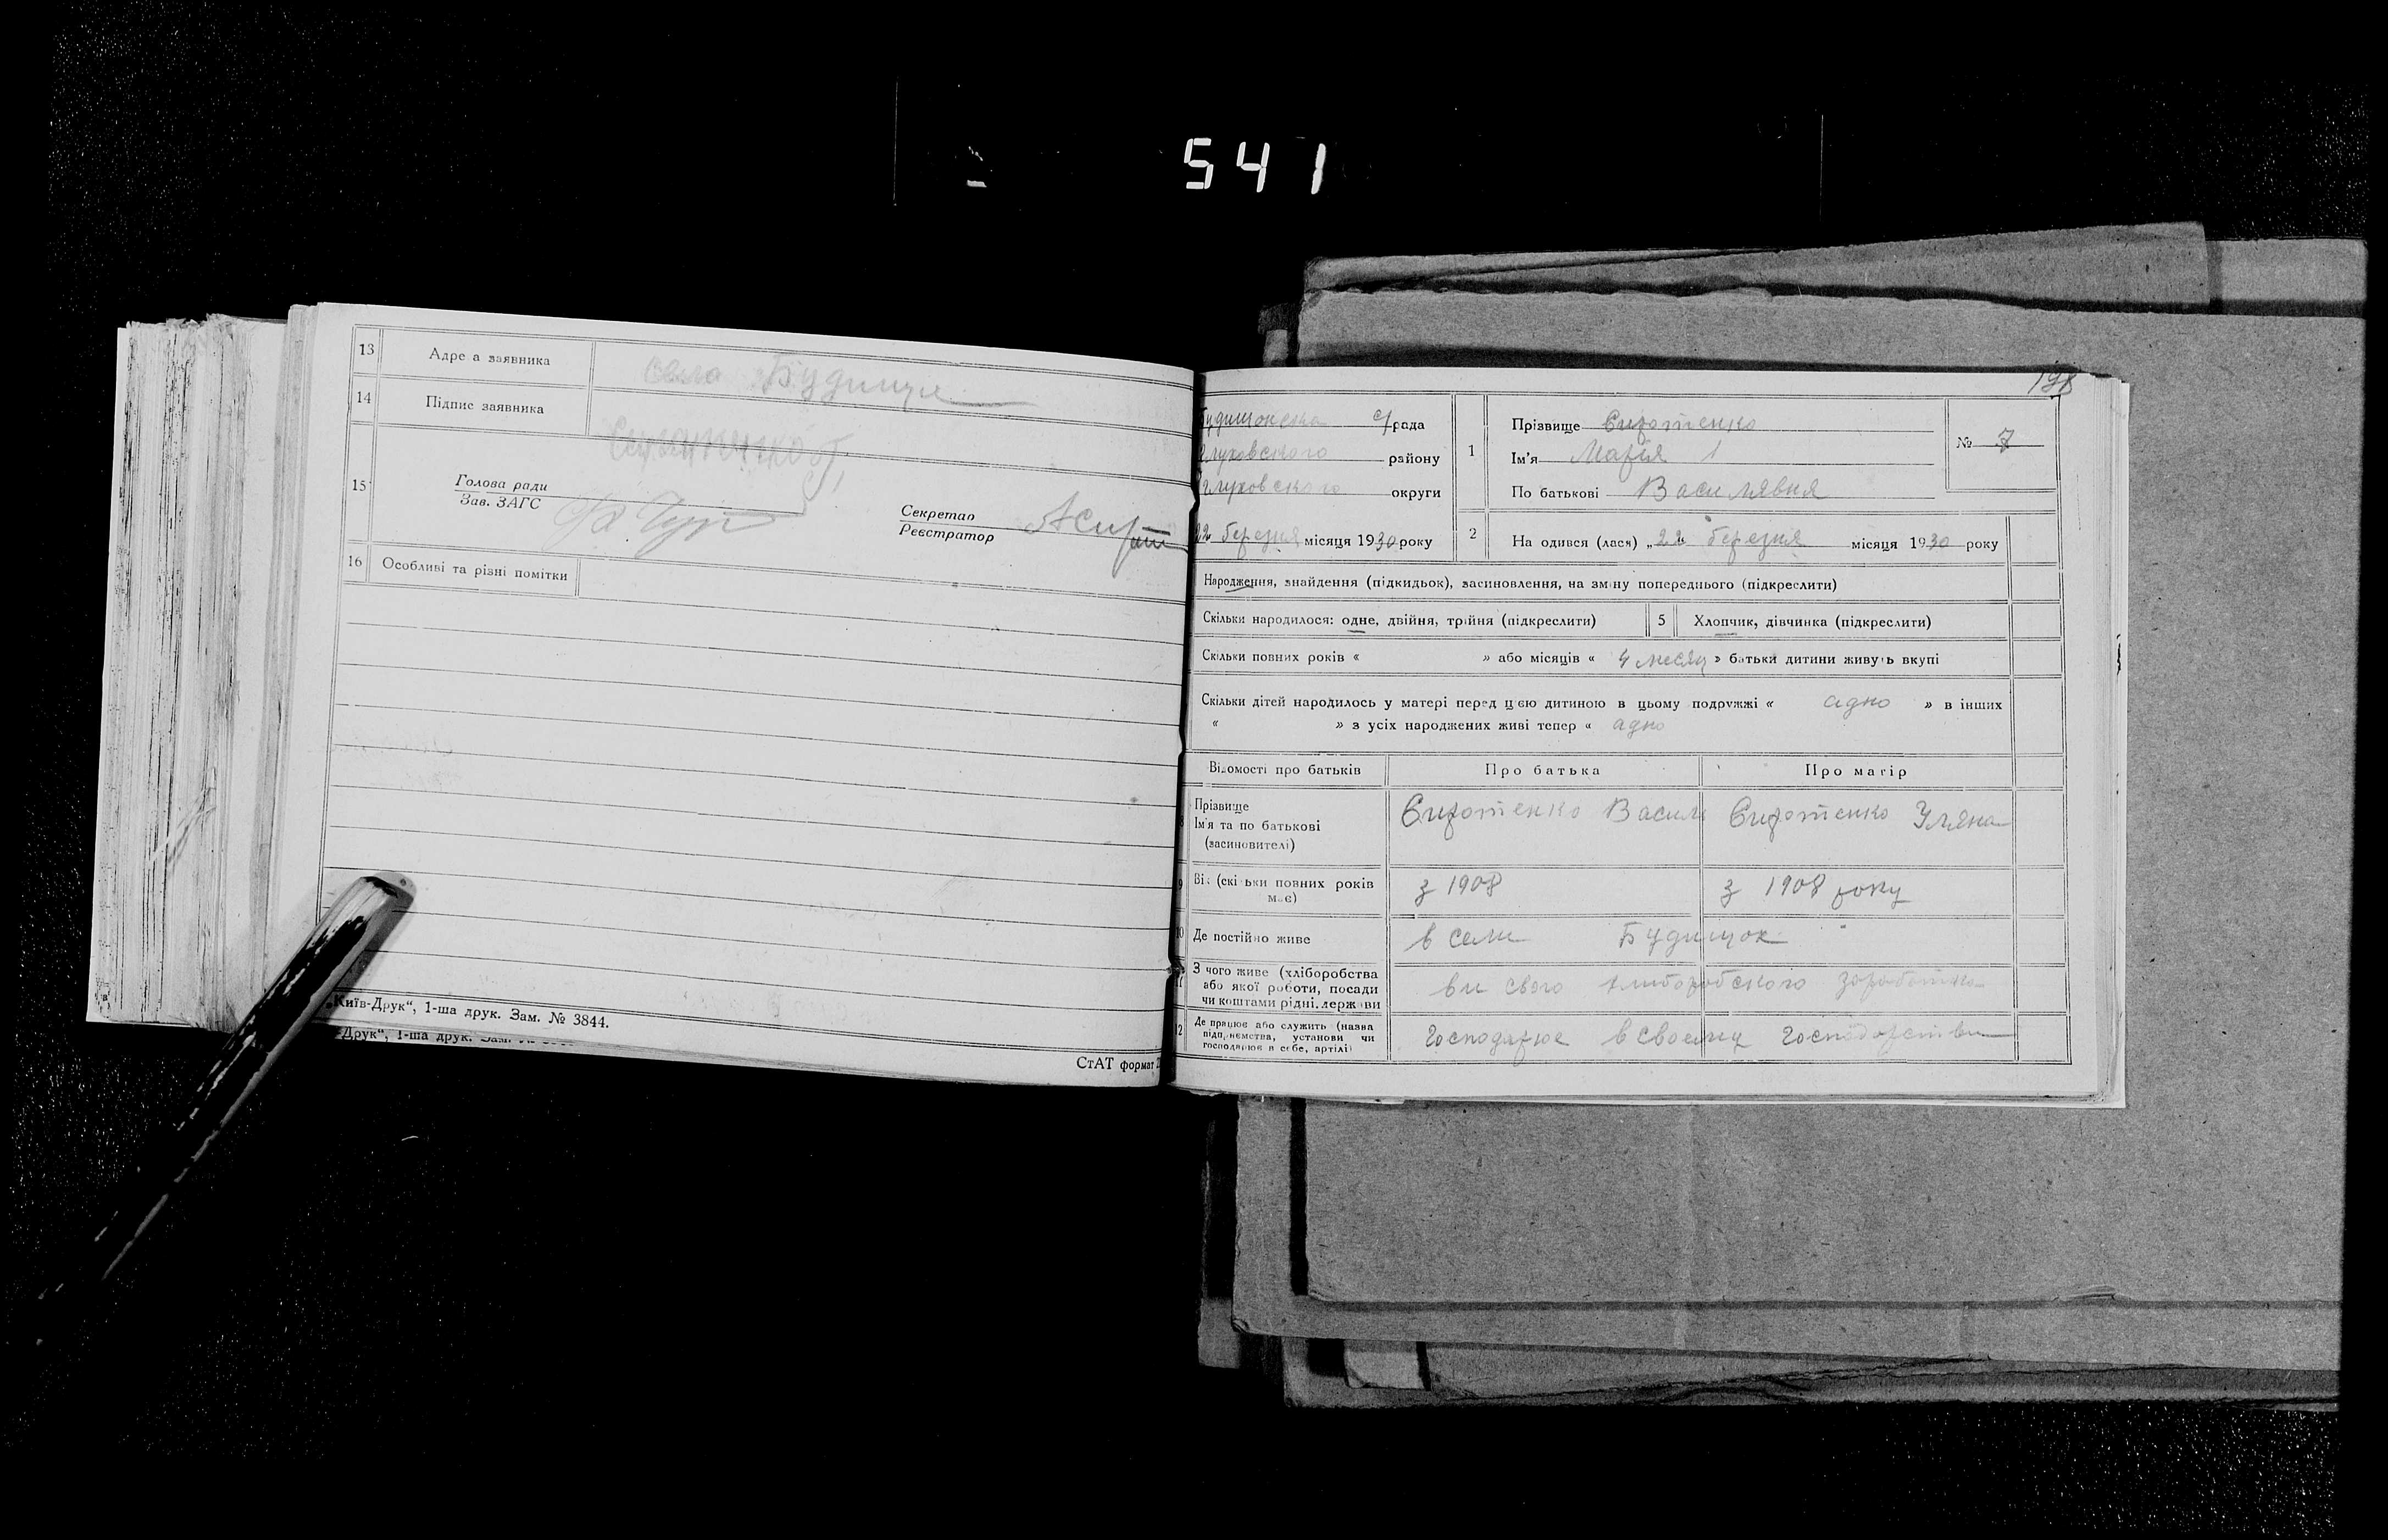 541
13 Адре а заявника села Будище
14 Підпис заявника
15 Голова ради
Зав. ЗАГС
Секретар
Реєстратор
16 Особливі та різні помітки
„Київ-Друк“, 1-ша друк. Зам. № 3844.
-Друк“, 1-ша друк.
СтАТ формат
198
Будищонска с/рада
Глуховского району
Глуховского округи
22 березня місяця 1930 року
1 Прізвище Сиротенко
Ім'я Марія
По батькові Василявня
№ 7
2 На одився (лася) „22 березня місяця 1930 року
Народження, знайдення (підкидьок), засиновлення, на зміну попереднього (підкреслити)
Скільки народилося: одне, двійня, трійня (підкреслити) 5 Хлопчик, дівчинка (підкреслити)
Скільки повних років « » або місяців « 4 месяц » батьки дитини живуть вкупі
Скільки дітей народилось у матері перед цією дитиною в цьому подружжі « адно » в інших
« » з усіх народжених живі тепер « адно
Відомості про батьків Про батька Про матір
Прізвище
Ім'я та по батькові
(засиновителі)
Сиротенко Васил Сиротенко Уляна
9 Вік (скільки повних років
має)
з 1908 з 1908 року
10 Де постійно живе в сели Будищох
З чого живе (хліборобства
або якої роботи, посади
чи коштами рідні, держави
ви свого хлиборобского
12 Де працює або служить (назва
підприємства, установи чи
господарює в себе, артілі)
Господарює в своему Господарстви